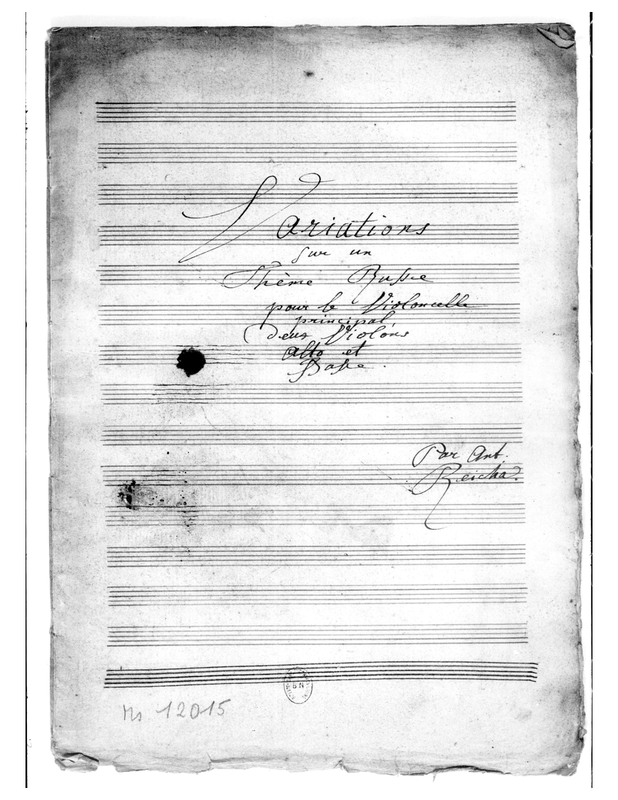 Variations
sur un
Thème Russe
pour le Violoncelle
principal,
deux Violons
Alto et
Basse.
Par Ant.
Reicha.
Ms 12015